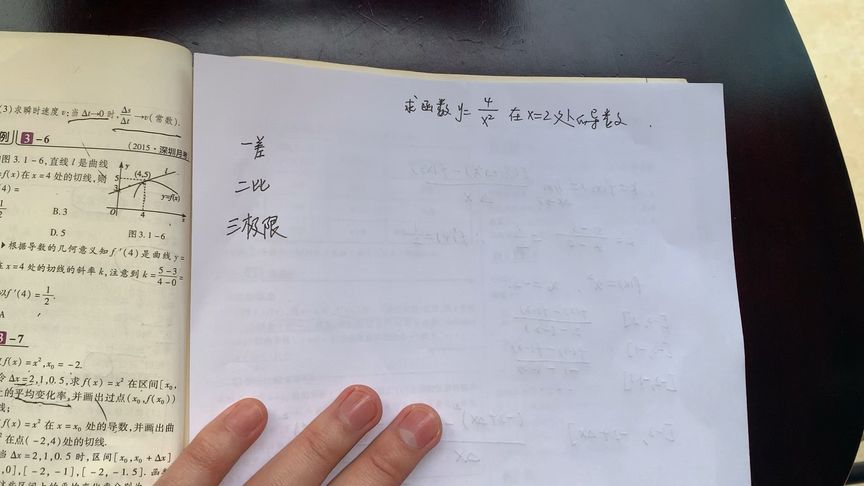 (3)求瞬时速度v:当Δt→0时,Δs/Δt→v(常数).
例 3-6
(2015·深圳月考
图3.1-6,直线l是曲线
=f(x)在x=4处的切线,则
(4)=
1/2
B.3
D.5
y
l
5
(4,5)
3
y=f(x)
O
4
x
图3.1-6
根据导数的几何意义知f′(4)是曲线y=
在x=4处的切线的斜率k,注意到k=(5-3)/(4-0)=
以f′(4)=1/2.
A
3-7
f(x)=x²,x₀=-2.
令Δx=2,1,0.5,求f(x)=x²在区间[x₀,
上的平均变化率,并画出过点(x₀,f(x₀))
线;
f(x)=x²在x=x₀处的导数,并画出曲
²在点(-2,4)处的切线.
当Δx=2,1,0.5时,区间[x₀,x₀+Δx]
,0],[-2,-1],[-2,-1.5].
求函数y=4/x² 在x=2处的导数.
一差
二比
三极限